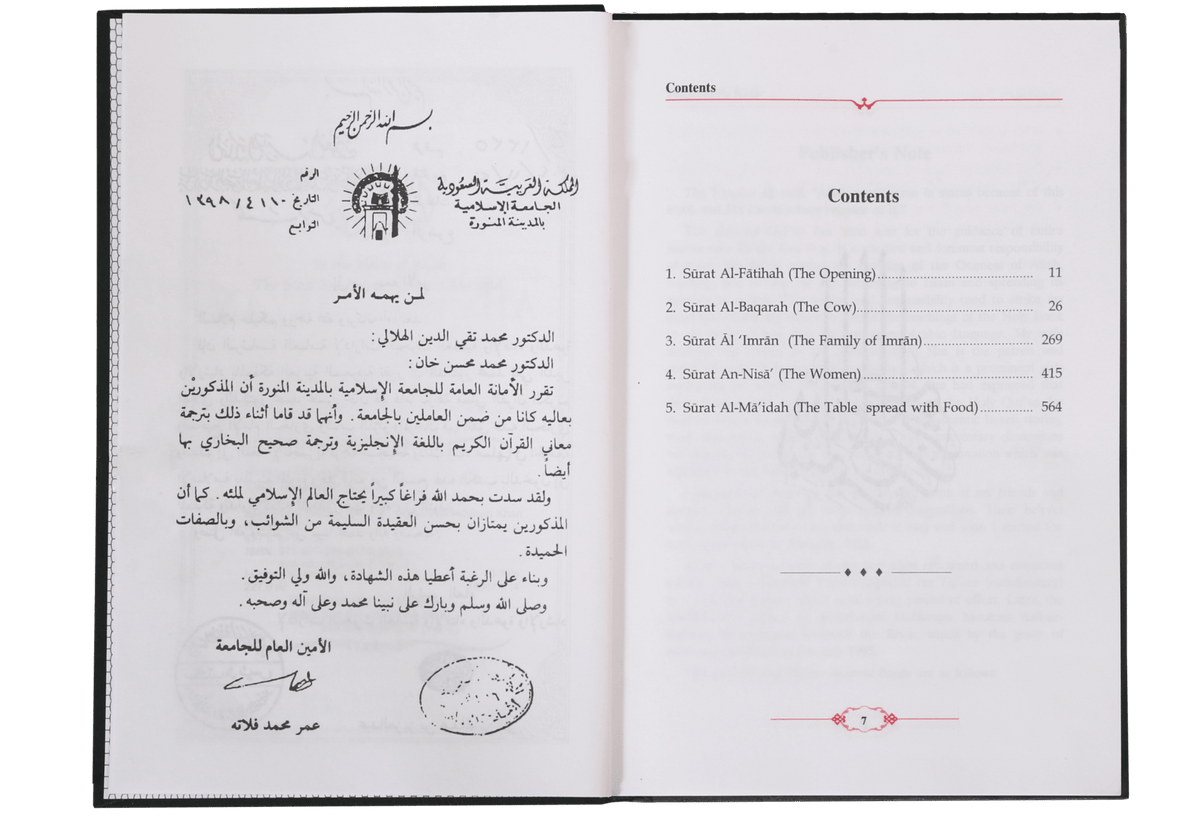 بسم الله الرحمن الرحيم
المملكة العربية السعودية
الجامعة الإسلامية
بالمدينة المنورة
الرقم
التاريخ ١٣٩٨/٤/١١٠
التوابع
لمن يهمه الأمر
الدكتور محمد تقي الدين الهلالي:
الدكتور محمد محسن خان:
تقرر الأمانة العامة للجامعة الإسلامية بالمدينة المنورة أن المذكورَيْن
بعاليه كانا من ضمن العاملين بالجامعة. وأنهما قد قاما أثناء ذلك بترجمة
معاني القرآن الكريم باللغة الإنجليزية وترجمة صحيح البخاري بها
أيضاً.
ولقد سدت بحمد الله فراغاً كبيراً يحتاج العالم الإسلامي لملئه. كما أن
المذكورين يمتازان بحسن العقيدة السليمة من الشوائب، وبالصفات
الحميدة.
وبناء على الرغبة أعطيا هذه الشهادة، والله ولي التوفيق.
وصلى الله وسلم وبارك على نبينا محمد وعلى آله وصحبه.
الأمين العام للجامعة
عمر محمد فلاته
Contents
Contents
1. Sūrat Al-Fātihah (The Opening)............................................. 11
2. Sūrat Al-Baqarah (The Cow).................................................. 26
3. Sūrat Āl ‘Imrān (The Family of Imrān)............................... 269
4. Sūrat An-Nisā’ (The Women)................................................ 415
5. Sūrat Al-Mā’idah (The Table spread with Food).............. 564
7